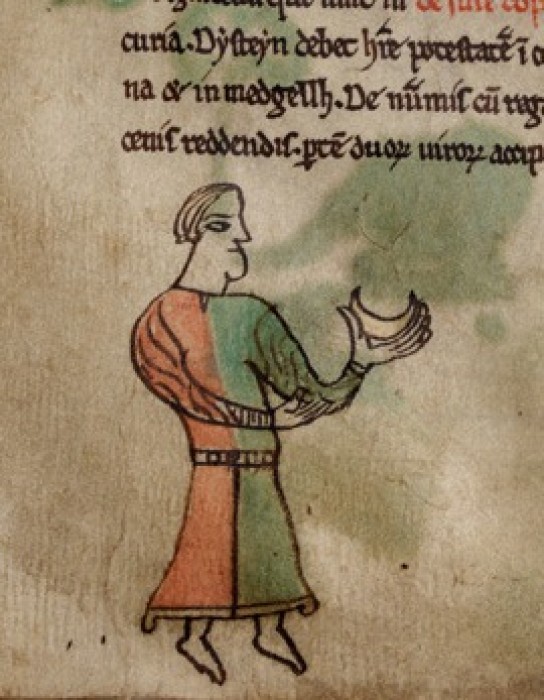 curia. Dẏsteẏn debet hr̄e potestatē ī
na & in medgellh. De nūmis cū reg
cenis reddendis. ꝑtē duoꝝ uiroꝝ accip